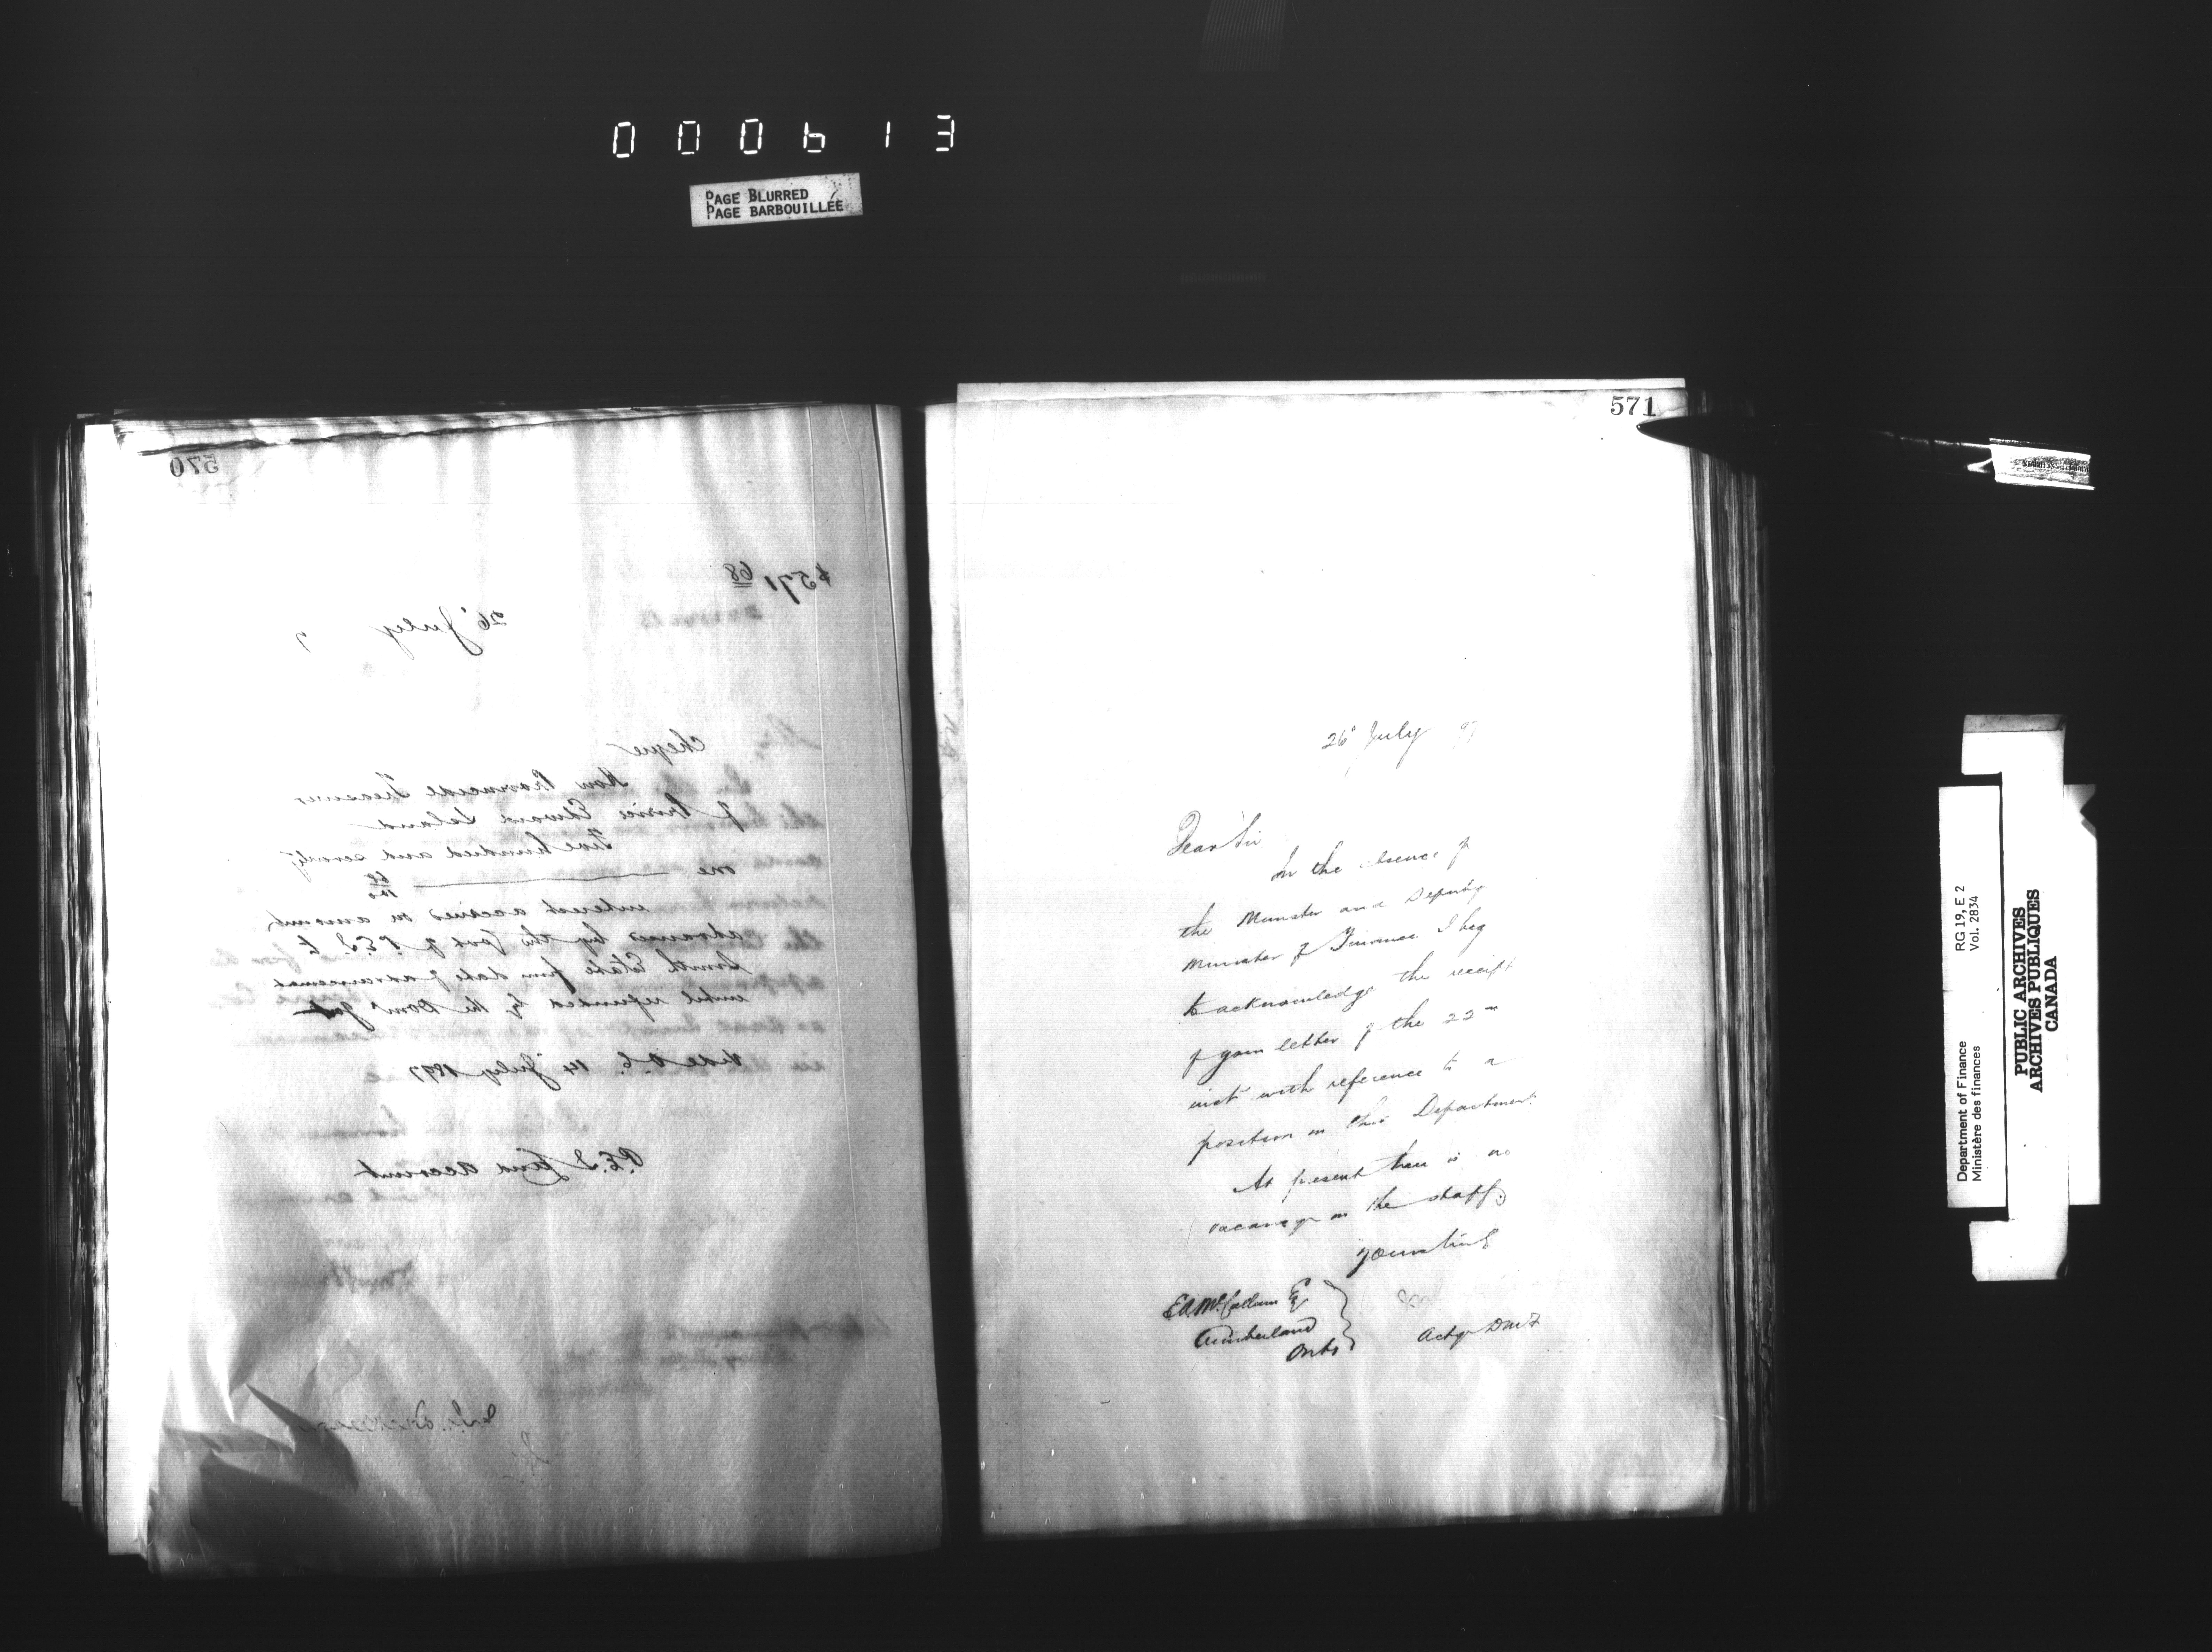 000613
PAGE BLURRED
PAGE BARBOUILLÉE
570
$571 68
26 July 7
Cheque
Hon Provincial Treasurer
of Prince Edward Island
Five hundred and seventy
one 68/100
interest accrued on amount
advanced by the Govt of P.E.I. to
Smith Estate from date of advancement
until refunded by the Dom Govt
Vide O.C. 14 July 1897
P.E.I. Land account
571
26 July 97
Dear Sir
In the absence of
the Minister and Deputy
Minister of Finance I beg
to acknowledge the receipt
of your letter of the 22nd
inst with reference to a
position in this Department.
At present there is no
vacancy on the staff.
Yours truly
Actg DMF
E A McCallum Esq
Cumberland
Onto
Department of Finance
Ministère des finances
RG 19, E 2
Vol. 2834
PUBLIC ARCHIVES
ARCHIVES PUBLIQUES
CANADA